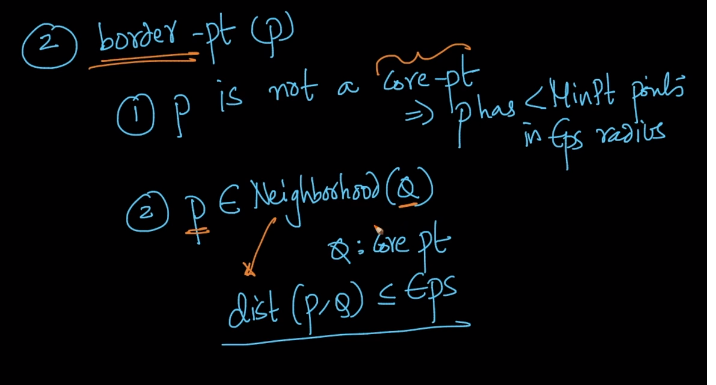 ② border-pt (p)
① p is not a core-pt
⇒ p has < MinPt points
in Eps radius
② p ∈ Neighborhood(Q)
Q : core pt
dist (p, Q) ≤ Eps